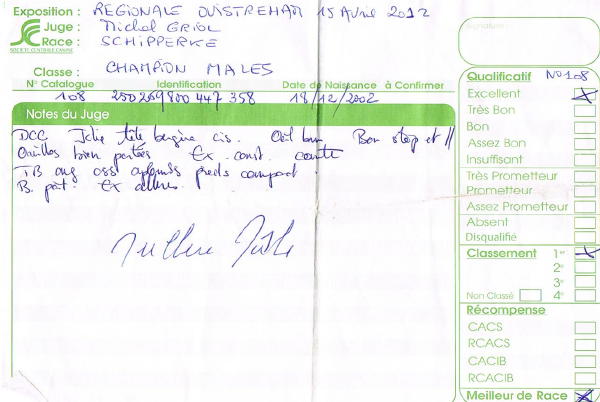 Exposition : REGIONALE OUISTREHAM 15 Avril 2012
Juge : Michel GRIOL
Race : SCHIPPERKE
SOCIETE CENTRALE CANINE
Classe : CHAMPION MALES
N° Catalogue Identification Date de Naissance à Confirmer
108 250269800447358 18/12/2002
Notes du Juge
DCC Jolie tête cis. Oeil brun Bon stop et //
Oreilles bien portées Ex. const. courte
TB ang oss aplombs pieds compact
B. poit. Ex allures
Signature
Qualificatif N°108
Excellent X
Très Bon
Bon
Assez Bon
Insuffisant
Très Prometteur
Prometteur
Assez Prometteur
Absent
Disqualifié
Classement 1er X
2e
3e
Non Classé 4e
Récompense
CACS
RCACS
CACIB
RCACIB
Meilleur de Race X